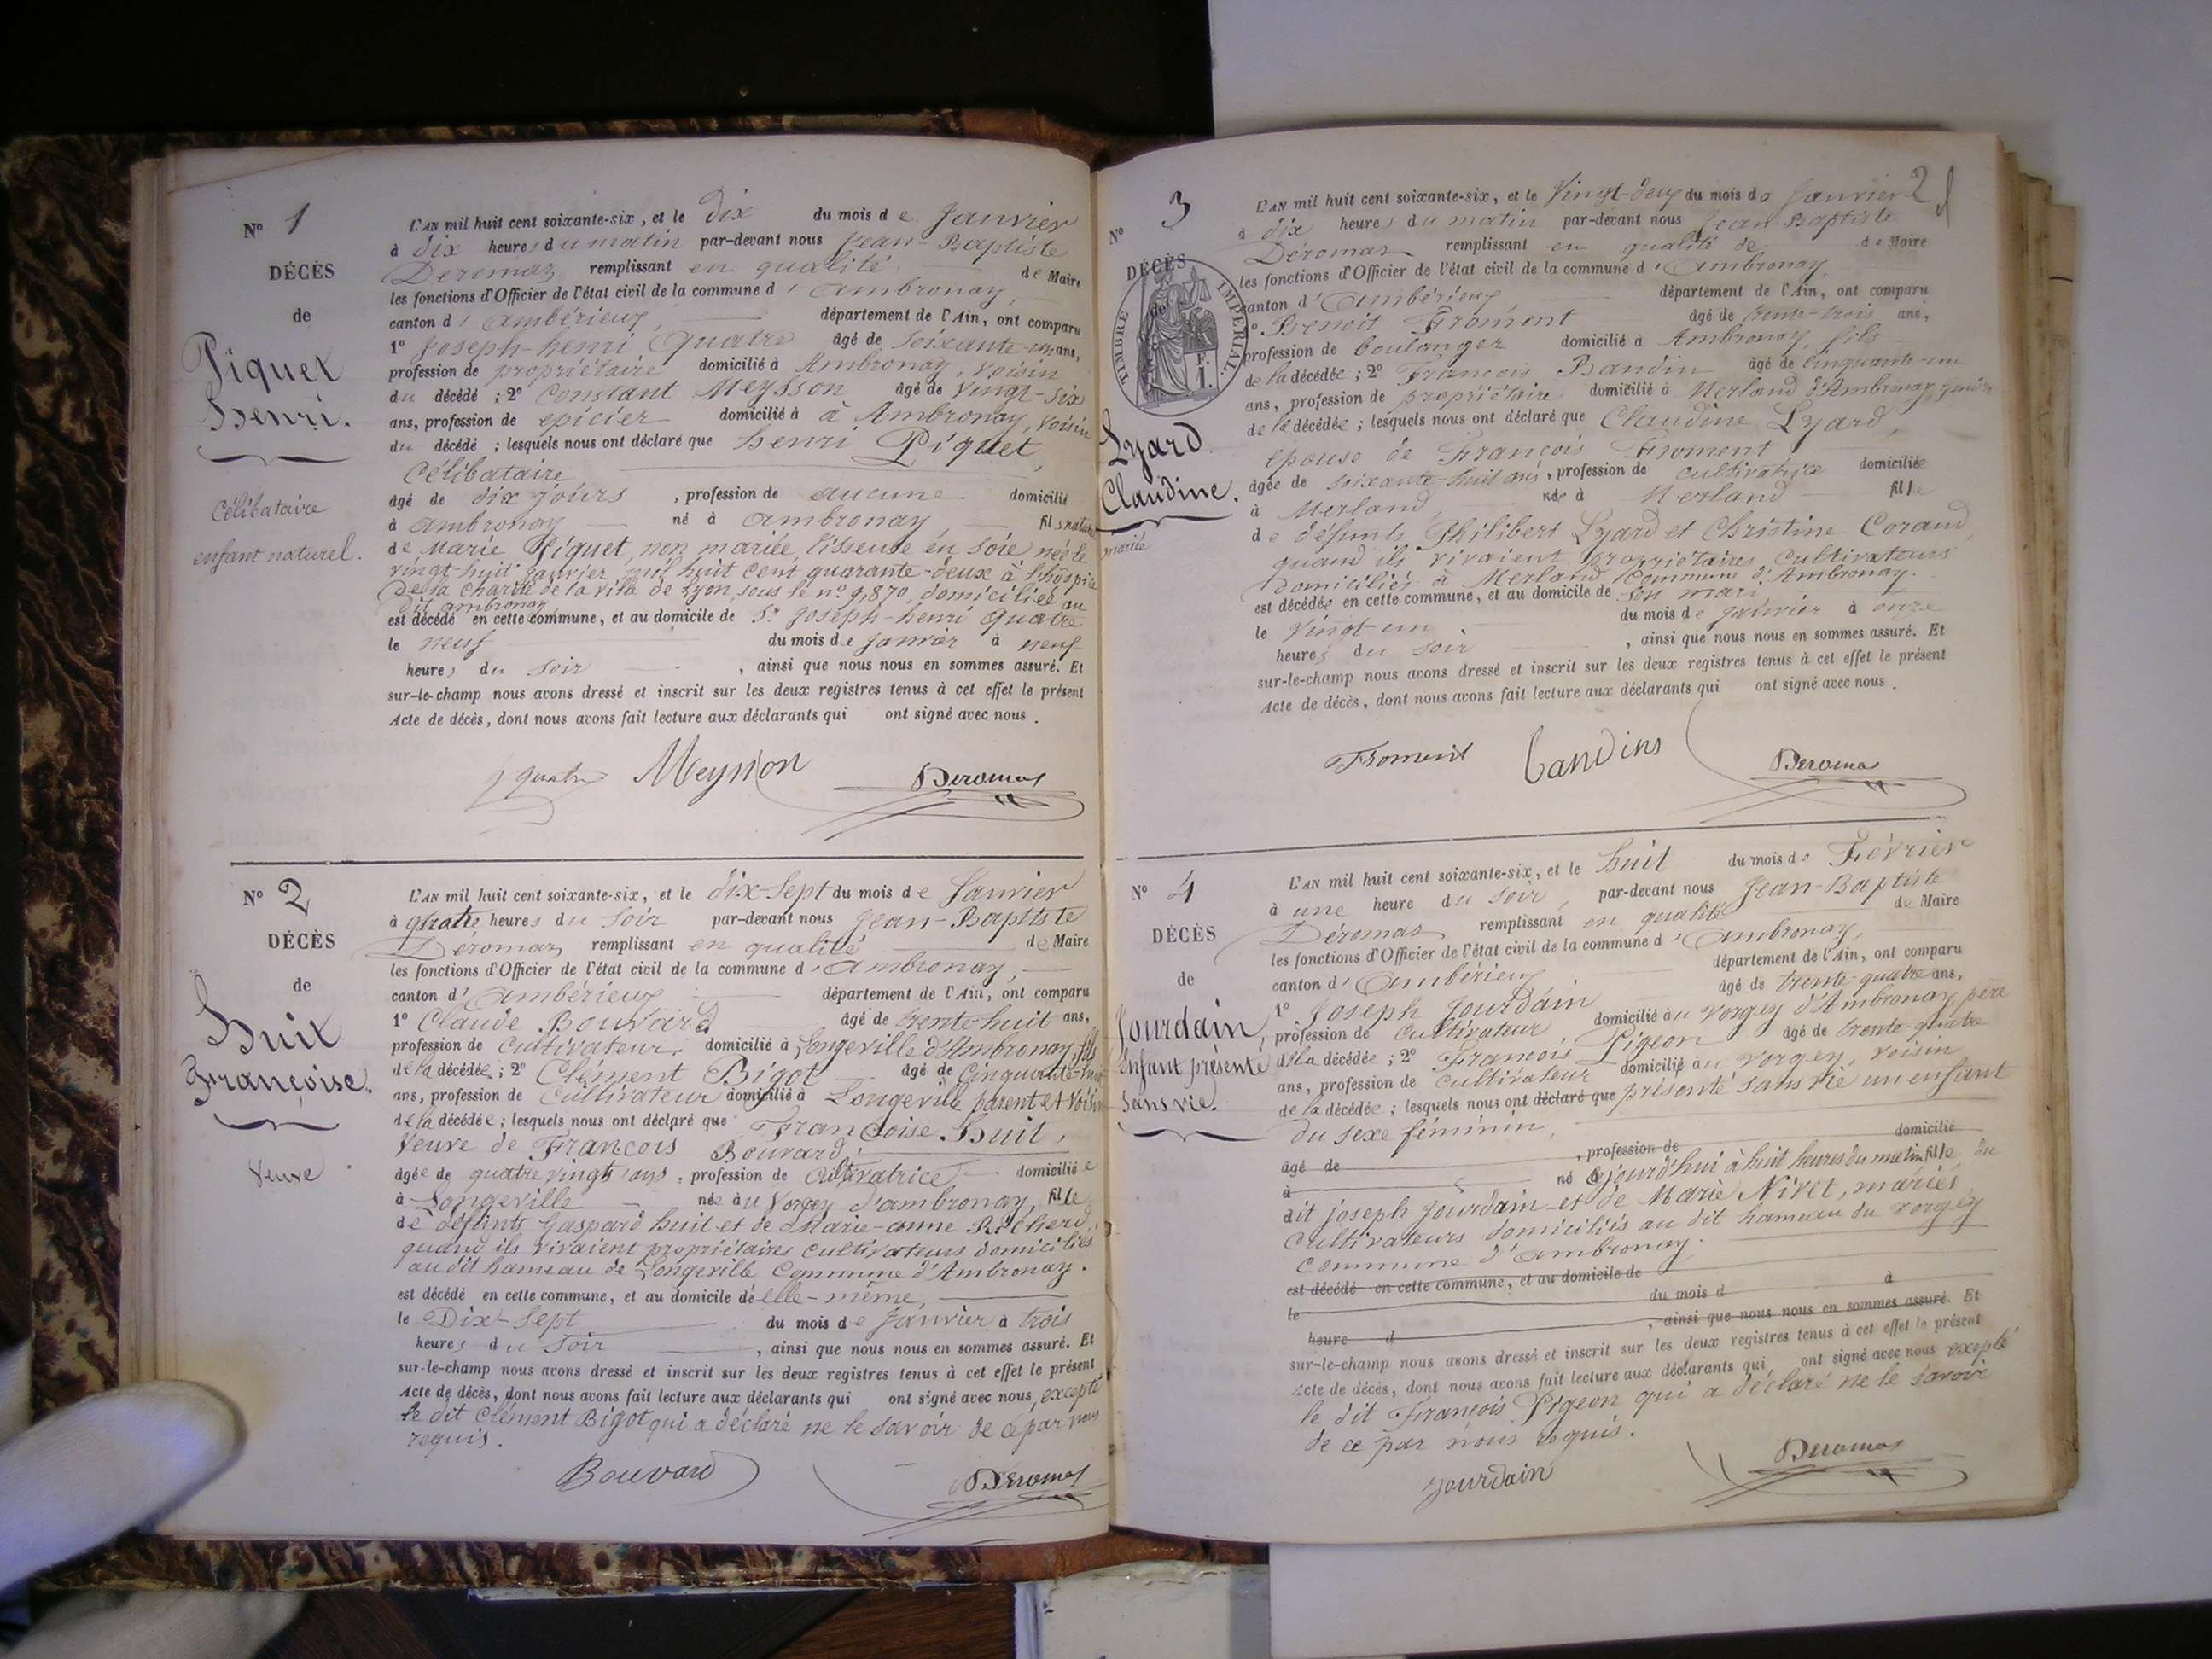 N° 1
DÉCÈS
de
Piquet
Henri.
Célibataire
enfant naturel.
L'AN mil huit cent soixante-six, et le dix du mois de Janvier
à dix heures du matin par-devant nous Jean-Baptiste
Déromas remplissant en qualité de Maire
les fonctions d'Officier de l'état civil de la commune d'Ambronay,
canton d'Ambérieux, département de l'Ain, ont comparu
1° Joseph-henri Quatre âgé de soixante-un ans,
profession de propriétaire domicilié à Ambronay, voisin
du décédé ; 2° Constant Meysson âgé de vingt-six
ans, profession de épicier domicilié à à Ambronay, voisin
du décédé ; lesquels nous ont déclaré que henri Piquet,
Célibataire
âgé de dix jours, profession de aucune domicilié
à ambronay né à ambronay, fils naturel
de Marie Piquet, non mariée, lisseuse en soie, née le
vingt-huit janvier mil huit cent quarante-deux à l'hospice
de la Charité de la ville de Lyon, sous le n° 9,870, domiciliée au
dit ambronay
est décédé en cette commune, et au domicile de Sr Joseph-henri Quatre
le neuf du mois de Janvier à neuf
heures du soir, ainsi que nous nous en sommes assuré. Et
sur-le-champ nous avons dressé et inscrit sur les deux registres tenus à cet effet le présent
Acte de décès, dont nous avons fait lecture aux déclarants qui ont signé avec nous.
j quatre Meysson Deromas
N° 2
DÉCÈS
de
Huit
Françoise.
Veuve
L'AN mil huit cent soixante-six, et le dix-Sept du mois de Janvier
à quatre heures du soir par-devant nous Jean-Baptiste
Déromas remplissant en qualité de Maire
les fonctions d'Officier de l'état civil de la commune d'Ambronay,
canton d'Ambérieux département de l'Ain, ont comparu
1° Claude Bouvard âgé de trente-huit ans,
profession de Cultivateur, domicilié à Longeville d'Ambronay, fils
de la décédée ; 2° Clément Bigot âgé de Cinquante-huit
ans, profession de Cultivateur domicilié à Longeville parent et Voisin
de la décédée ; lesquels nous ont déclaré que Françoise Huit,
Veuve de François Bouvard,
âgée de quatre vingts ans, profession de Cultivatrice domiciliée
à Longeville née au Vorgey d'ambronay, fille
de défunts Gaspard huit et de Marie-anne Richerd,
quand ils vivaient propriétaires cultivateurs domiciliés
au dit hameau de Longeville Commune d'Ambronay.
est décédé en cette commune, et au domicile de elle-même,
le Dix-Sept du mois de Janvier à trois
heures du soir, ainsi que nous nous en sommes assuré. Et
sur-le-champ nous avons dressé et inscrit sur les deux registres tenus à cet effet le présent
Acte de décès, dont nous avons fait lecture aux déclarants qui ont signé avec nous, excepté
le dit Clément Bigot qui a déclaré ne le savoir de ce par nous
requis.
Bouvard Deromas
2
N° 3
DÉCÈS
de
TIMBRE IMPÉRIAL
Lyard
Claudine.
mariée
L'AN mil huit cent soixante-six, et le Vingt-deux du mois de Janvier
à dix heures du matin par-devant nous Jean-Baptiste
Déromas remplissant en qualité de de Maire
les fonctions d'Officier de l'état civil de la commune d'Ambronay,
canton d'Ambérieux, département de l'Ain, ont comparu
1° Benoît Froment âgé de trente-trois ans,
profession de boulanger domicilié à Ambronay, fils
de la décédée ; 2° François Bandin âgé de Cinquante-un
ans, profession de propriétaire domicilié à Merland d'Ambronay, gendre
de la décédée ; lesquels nous ont déclaré que Claudine Lyard,
épouse de François Froment
âgée de soixante-huit ans, profession de cultivatrice domiciliée
à Merland, née à Merland fille
de défunts Philibert Lyard et Christine Corand,
quand ils vivaient propriétaires Cultivateurs
domiciliés à Merland Commune d'Ambronay.
est décédée en cette commune, et au domicile de son mari
le Vingt-un du mois de janvier à onze
heures du soir, ainsi que nous nous en sommes assuré. Et
sur-le-champ nous avons dressé et inscrit sur les deux registres tenus à cet effet le présent
Acte de décès, dont nous avons fait lecture aux déclarants qui ont signé avec nous.
Froment bandins Deromas
N° 4
DÉCÈS
de
Jourdain,
Enfant présenté
sans vie.
L'AN mil huit cent soixante-six, et le huit du mois de Février
à une heure du soir, par-devant nous Jean-Baptiste
Déromas remplissant en qualité de Maire
les fonctions d'Officier de l'état civil de la commune d'Ambronay,
canton d'Ambérieux département de l'Ain, ont comparu
1° Joseph Jourdain âgé de trente-quatre ans,
profession de Cultivateur domicilié au Vorgey d'Ambronay, père
de la décédée ; 2° François Pigeon âgé de trente-quatre
ans, profession de cultivateur domicilié au Vorgey, voisin
de la décédée ; lesquels nous ont déclaré que présenté sans vie un enfant
du sexe féminin,
âgé de , profession de domicilié
à né aujourd'hui à huit heures du matin fille du
dit joseph Jourdain et de Marie Nivet, mariés
Cultivateurs domiciliés au dit hameau du vorgey
commune d'ambronay.
est décédé en cette commune, et au domicile de
le du mois d à
heure d , ainsi que nous nous en sommes assuré. Et
sur-le-champ nous avons dressé et inscrit sur les deux registres tenus à cet effet le présent
Acte de décès, dont nous avons fait lecture aux déclarants qui ont signé avec nous excepté
le dit François Pigeon qui a déclaré ne le savoir
de ce par nous requis.
Jourdain Deromas